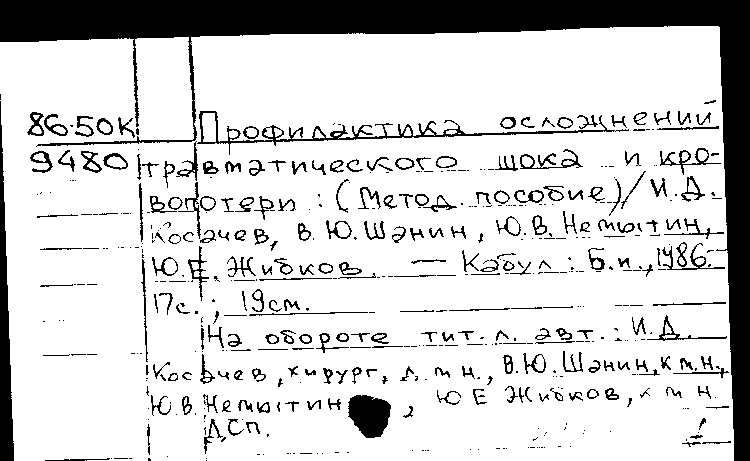 86-50К Профилактика осложнений
9480 травматического шока и кро-
вопотери : (Метод. пособие) / И.Д.
Косачев, В.Ю. Шанин, Ю.В. Немытин,
Ю.Е. Жибков. — Кабул : Б.и., 1986.
17с. ; 19см.
На обороте тит. л. авт. : И.Д.
Косачев, хирург, д. м. н., В.Ю. Шанин, к.м.н.,
Ю.В. Немытин , Ю Е Жибков, к м н
ДСП.